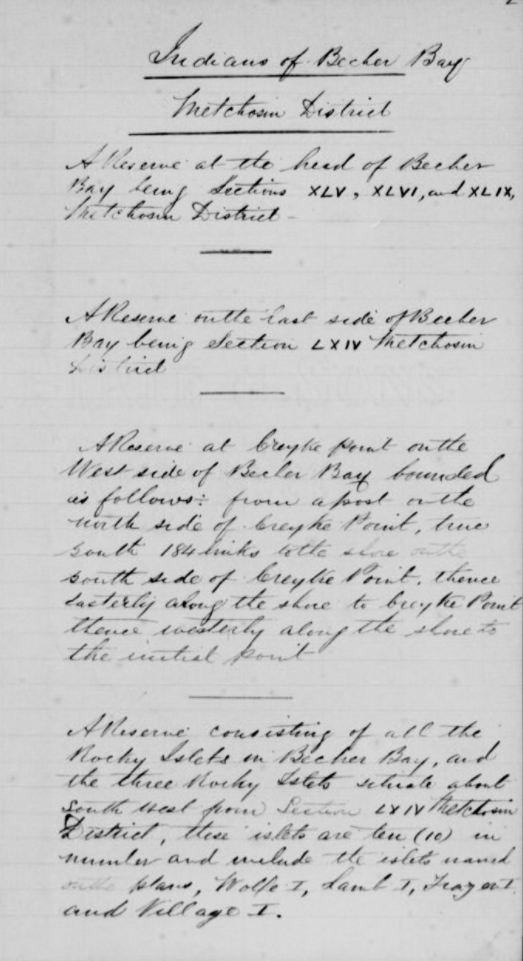 Indians of Becher Bay
Metchosin District
A Reserve at the head of Becher
Bay being Sections XLV, XLVI, and XLIX,
Metchosin District -
A Reserve on the East side of Becher
Bay being Section LXIV Metchosin
District
A Reserve at Creyke point on the
West side of Becher Bay bounded
as follows: from a post on the
north side of Creyke Point, true
South 184 links to the shore on the
south side of Creyke Point, thence
Easterly along the shore to Creyke Point
thence westerly along the shore to
the initial point
A Reserve consisting of all the
Rocky Islets in Becher Bay, and
the three Rocky Islets situate about
South West from Section LXIV Metchosin
District, these islets are ten (10) in
number and include the islets named
on the plans, Wolfe I, Lamb I, Frazer I
and Village I.